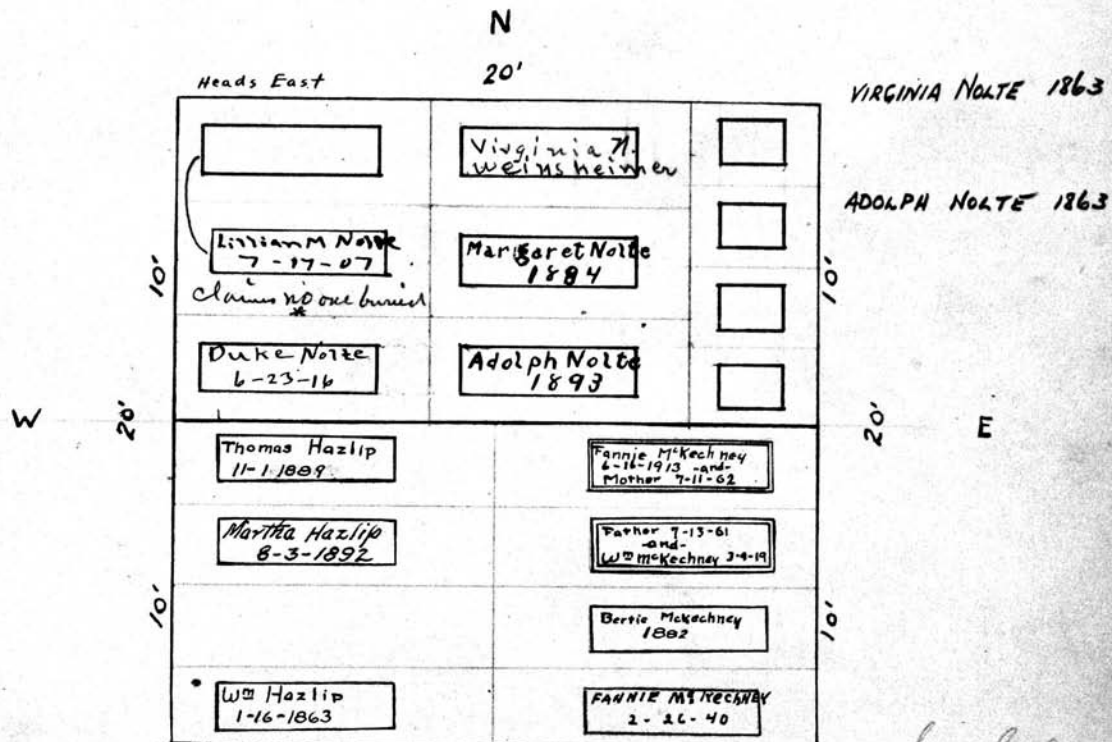 N
20'
Heads East
VIRGINIA NOLTE 1863
Virginia N.
Weinsheimer
ADOLPH NOLTE 1863
Lillian M Nolte
7-17-07
claims no one buried
*
Margaret Nolte
1884
10'
10'
Duke Nolte
6-23-16
Adolph Nolte
1893
W
20'
20'
E
Thomas Hazlip
11-1-1889
Fannie McKechney
6-16-1913 -and-
Mother 7-11-62
Martha Hazlip
8-3-1892
Father 7-13-61
-and-
Wm McKechney 3-9-19
10'
10'
Bertie McKechney
1882
Wm Hazlip
1-16-1863
FANNIE McKECHNEY
2-26-40